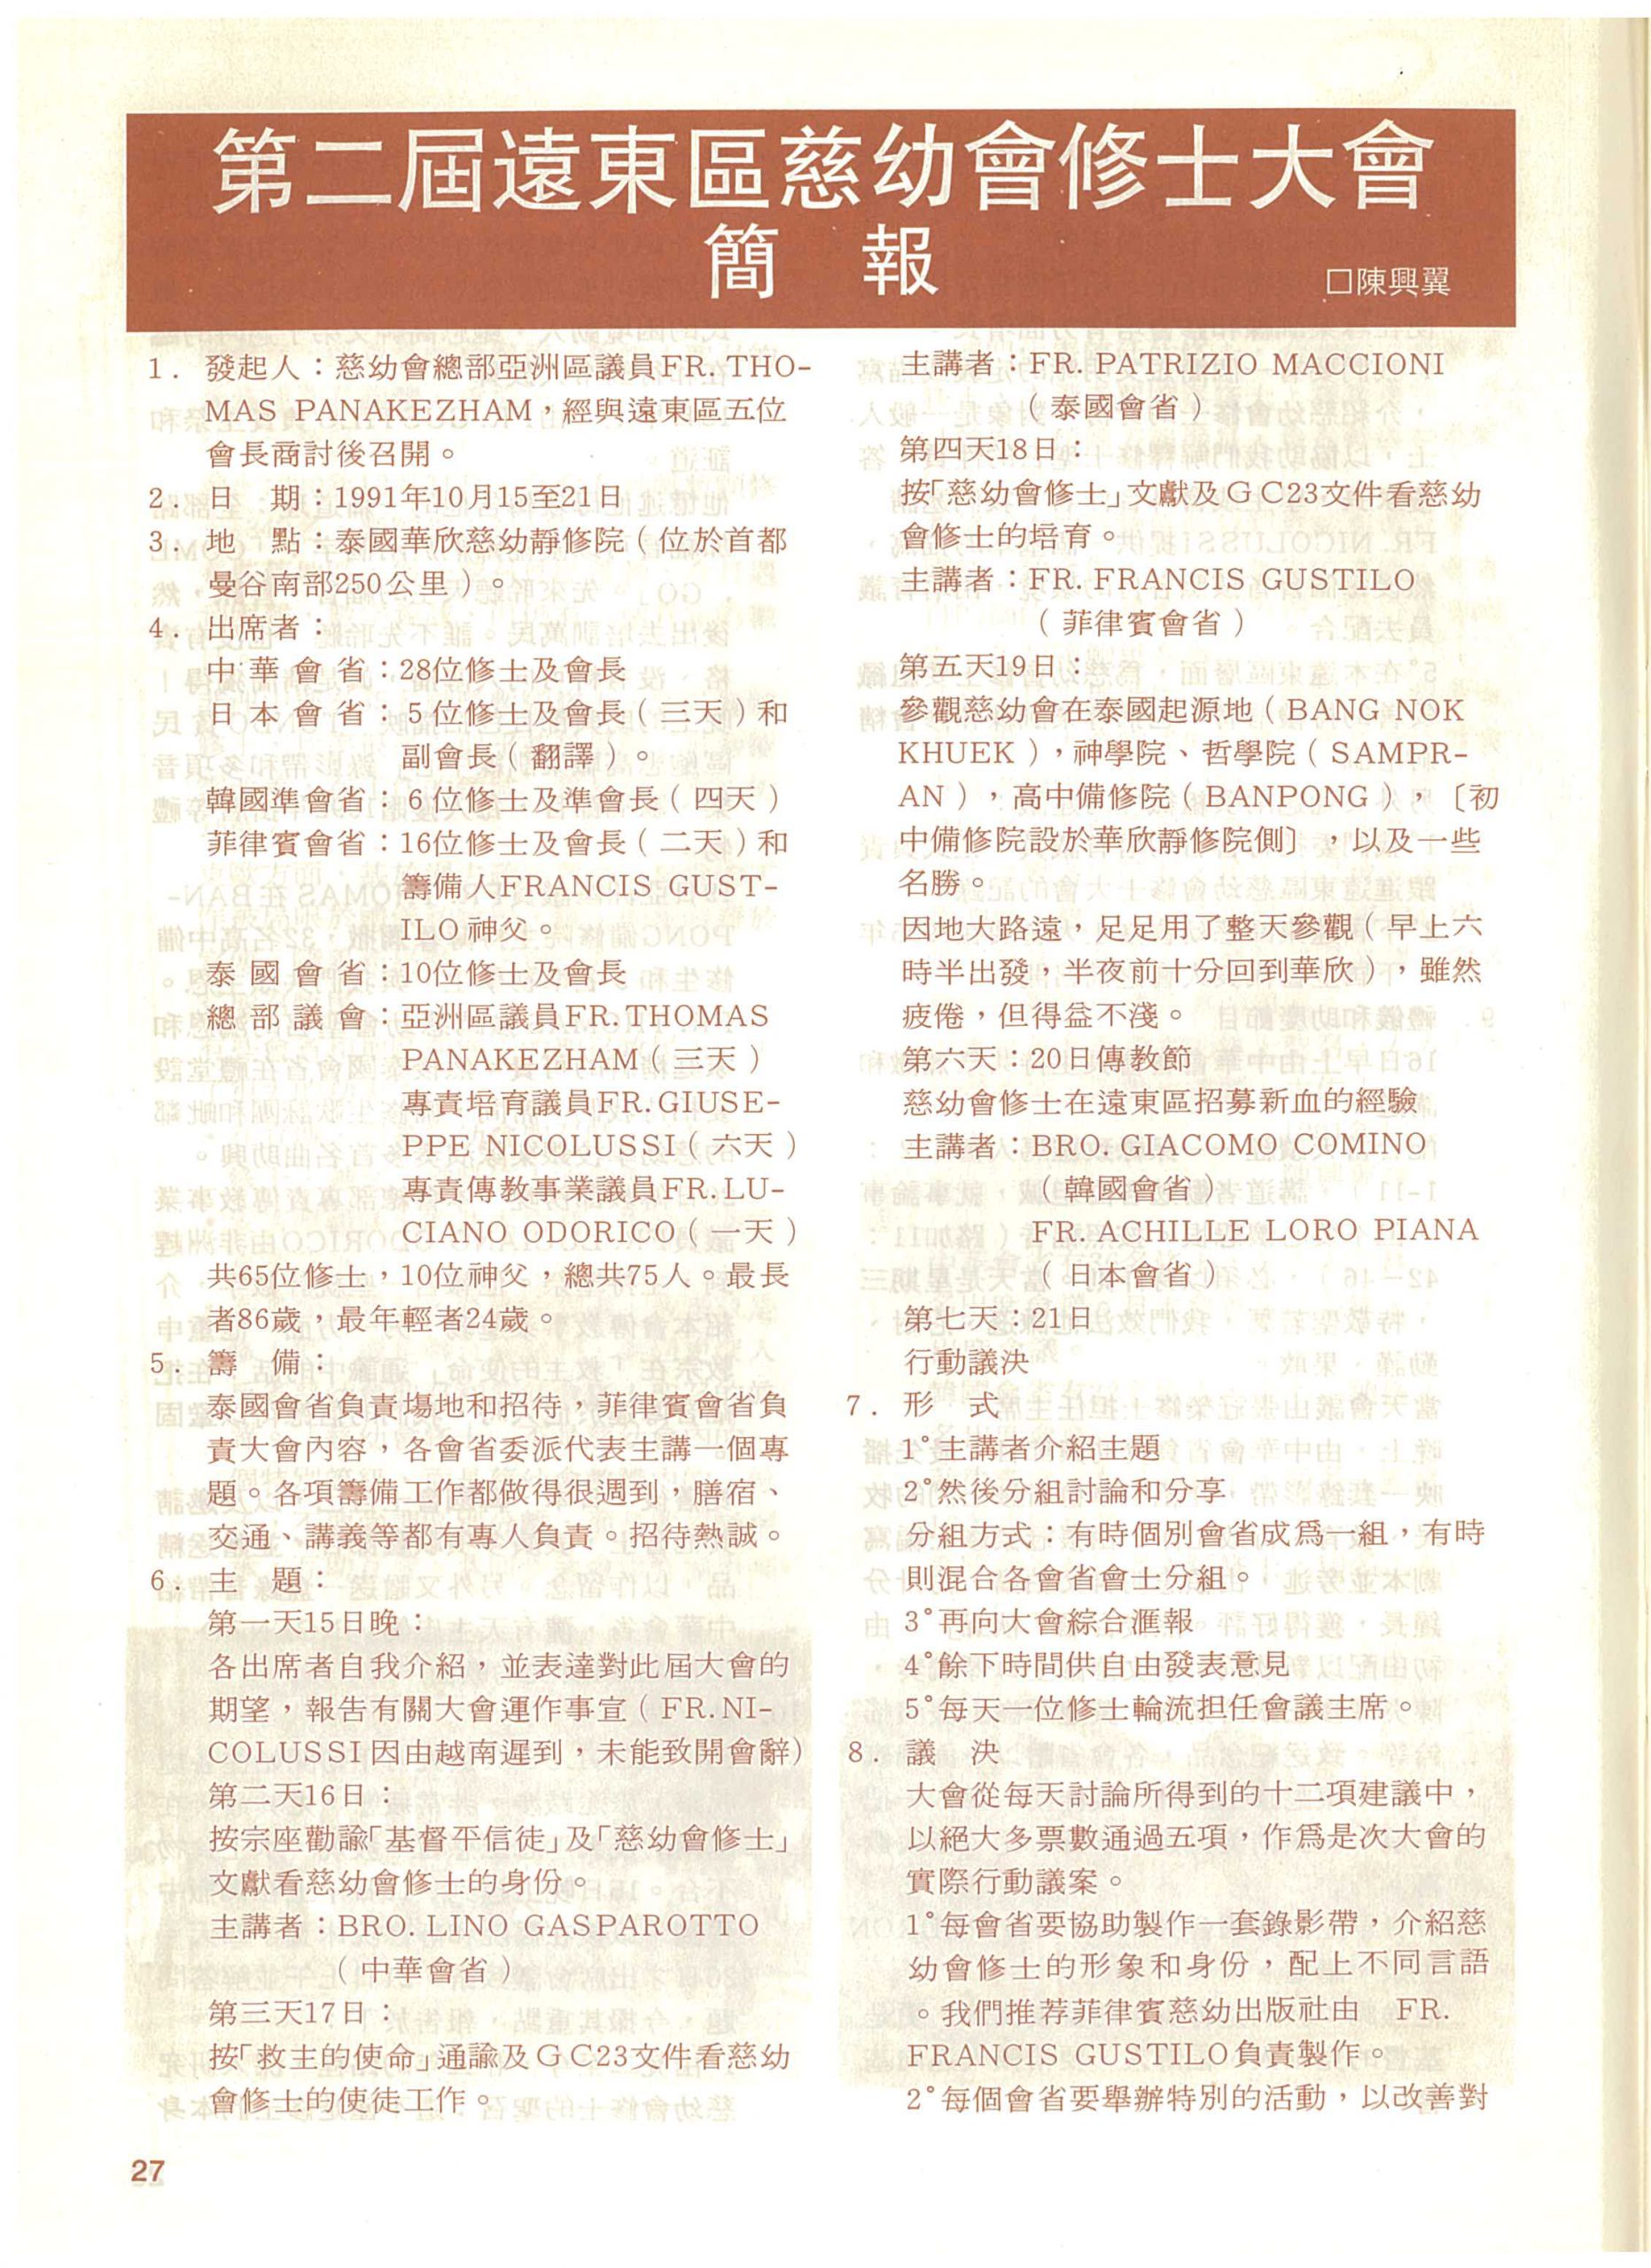 第二屆遠東區慈幼會修士大會
簡 報
□陳興翼
1. 發起人：慈幼會總部亞洲區議員FR. THO-
MAS PANAKEZHAM，經與遠東區五位
會長商討後召開。
2. 日 期：1991年10月15至21日
3. 地 點：泰國華欣慈幼靜修院（位於首都
曼谷南部250公里）。
4. 出席者：
中華會省：28位修士及會長
日本會省：5位修士及會長（三天）和
副會長（翻譯）。
韓國準會省：6位修士及準會長（四天）
菲律賓會省：16位修士及會長（二天）和
籌備人FRANCIS GUST-
ILO神父。
泰國會省：10位修士及會長
總部議會：亞洲區議員FR. THOMAS
PANAKEZHAM（三天）
專責培育議員FR. GIUSE-
PPE NICOLUSSI（六天）
專責傳教事業議員FR. LU-
CIANO ODORICO（一天）
共65位修士，10位神父，總共75人。最長
者86歲，最年輕者24歲。
5. 籌 備：
泰國會省負責場地和招待，菲律賓會省負
責大會內容，各會省委派代表主講一個專
題。各項籌備工作都做得很週到，膳宿、
交通、講義等都有專人負責。招待熱誠。
6. 主 題：
第一天15日晚：
各出席者自我介紹，並表達對此屆大會的
期望，報告有關大會運作事宣（FR. NI-
COLUSSI因由越南遲到，未能致開會辭）
第二天16日：
按宗座勸諭「基督平信徒」及「慈幼會修士」
文獻看慈幼會修士的身份。
主講者：BRO. LINO GASPAROTTO
（中華會省）
第三天17日：
按「救主的使命」通諭及GC23文件看慈幼
會修士的使徒工作。
主講者：FR. PATRIZIO MACCIONI
（泰國會省）
第四天18日：
按「慈幼會修士」文獻及GC23文件看慈幼
會修士的培育。
主講者：FR. FRANCIS GUSTILO
（菲律賓會省）
第五天19日：
參觀慈幼會在泰國起源地（BANG NOK
KHUEK），神學院、哲學院（SAMPR-
AN），高中備修院（BANPONG），〔初
中備修院設於華欣靜修院側〕，以及一些
名勝。
因地大路遠，足足用了整天參觀（早上六
時半出發，半夜前十分回到華欣），雖然
疲倦，但得益不淺。
第六天：20日傳教節
慈幼會修士在遠東區招募新血的經驗
主講者：BRO. GIACOMO COMINO
（韓國會省）
FR. ACHILLE LORO PIANA
（日本會省）
第七天：21日
行動議決
7. 形 式
1°主講者介紹主題
2°然後分組討論和分享
分組方式：有時個別會省成爲一組，有時
則混合各會省會士分組。
3°再向大會綜合滙報
4°餘下時間供自由發表意見
5°每天一位修士輪流担任會議主席。
8. 議 決
大會從每天討論所得到的十二項建議中，
以絕大多票數通過五項，作爲是次大會的
實際行動議案。
1°每會省要協助製作一套錄影帶，介紹慈
幼會修士的形象和身份，配上不同言語
。我們推荐菲律賓慈幼出版社由 FR.
FRANCIS GUSTILO負責製作。
2°每個會省要舉辦特別的活動，以改善對
27